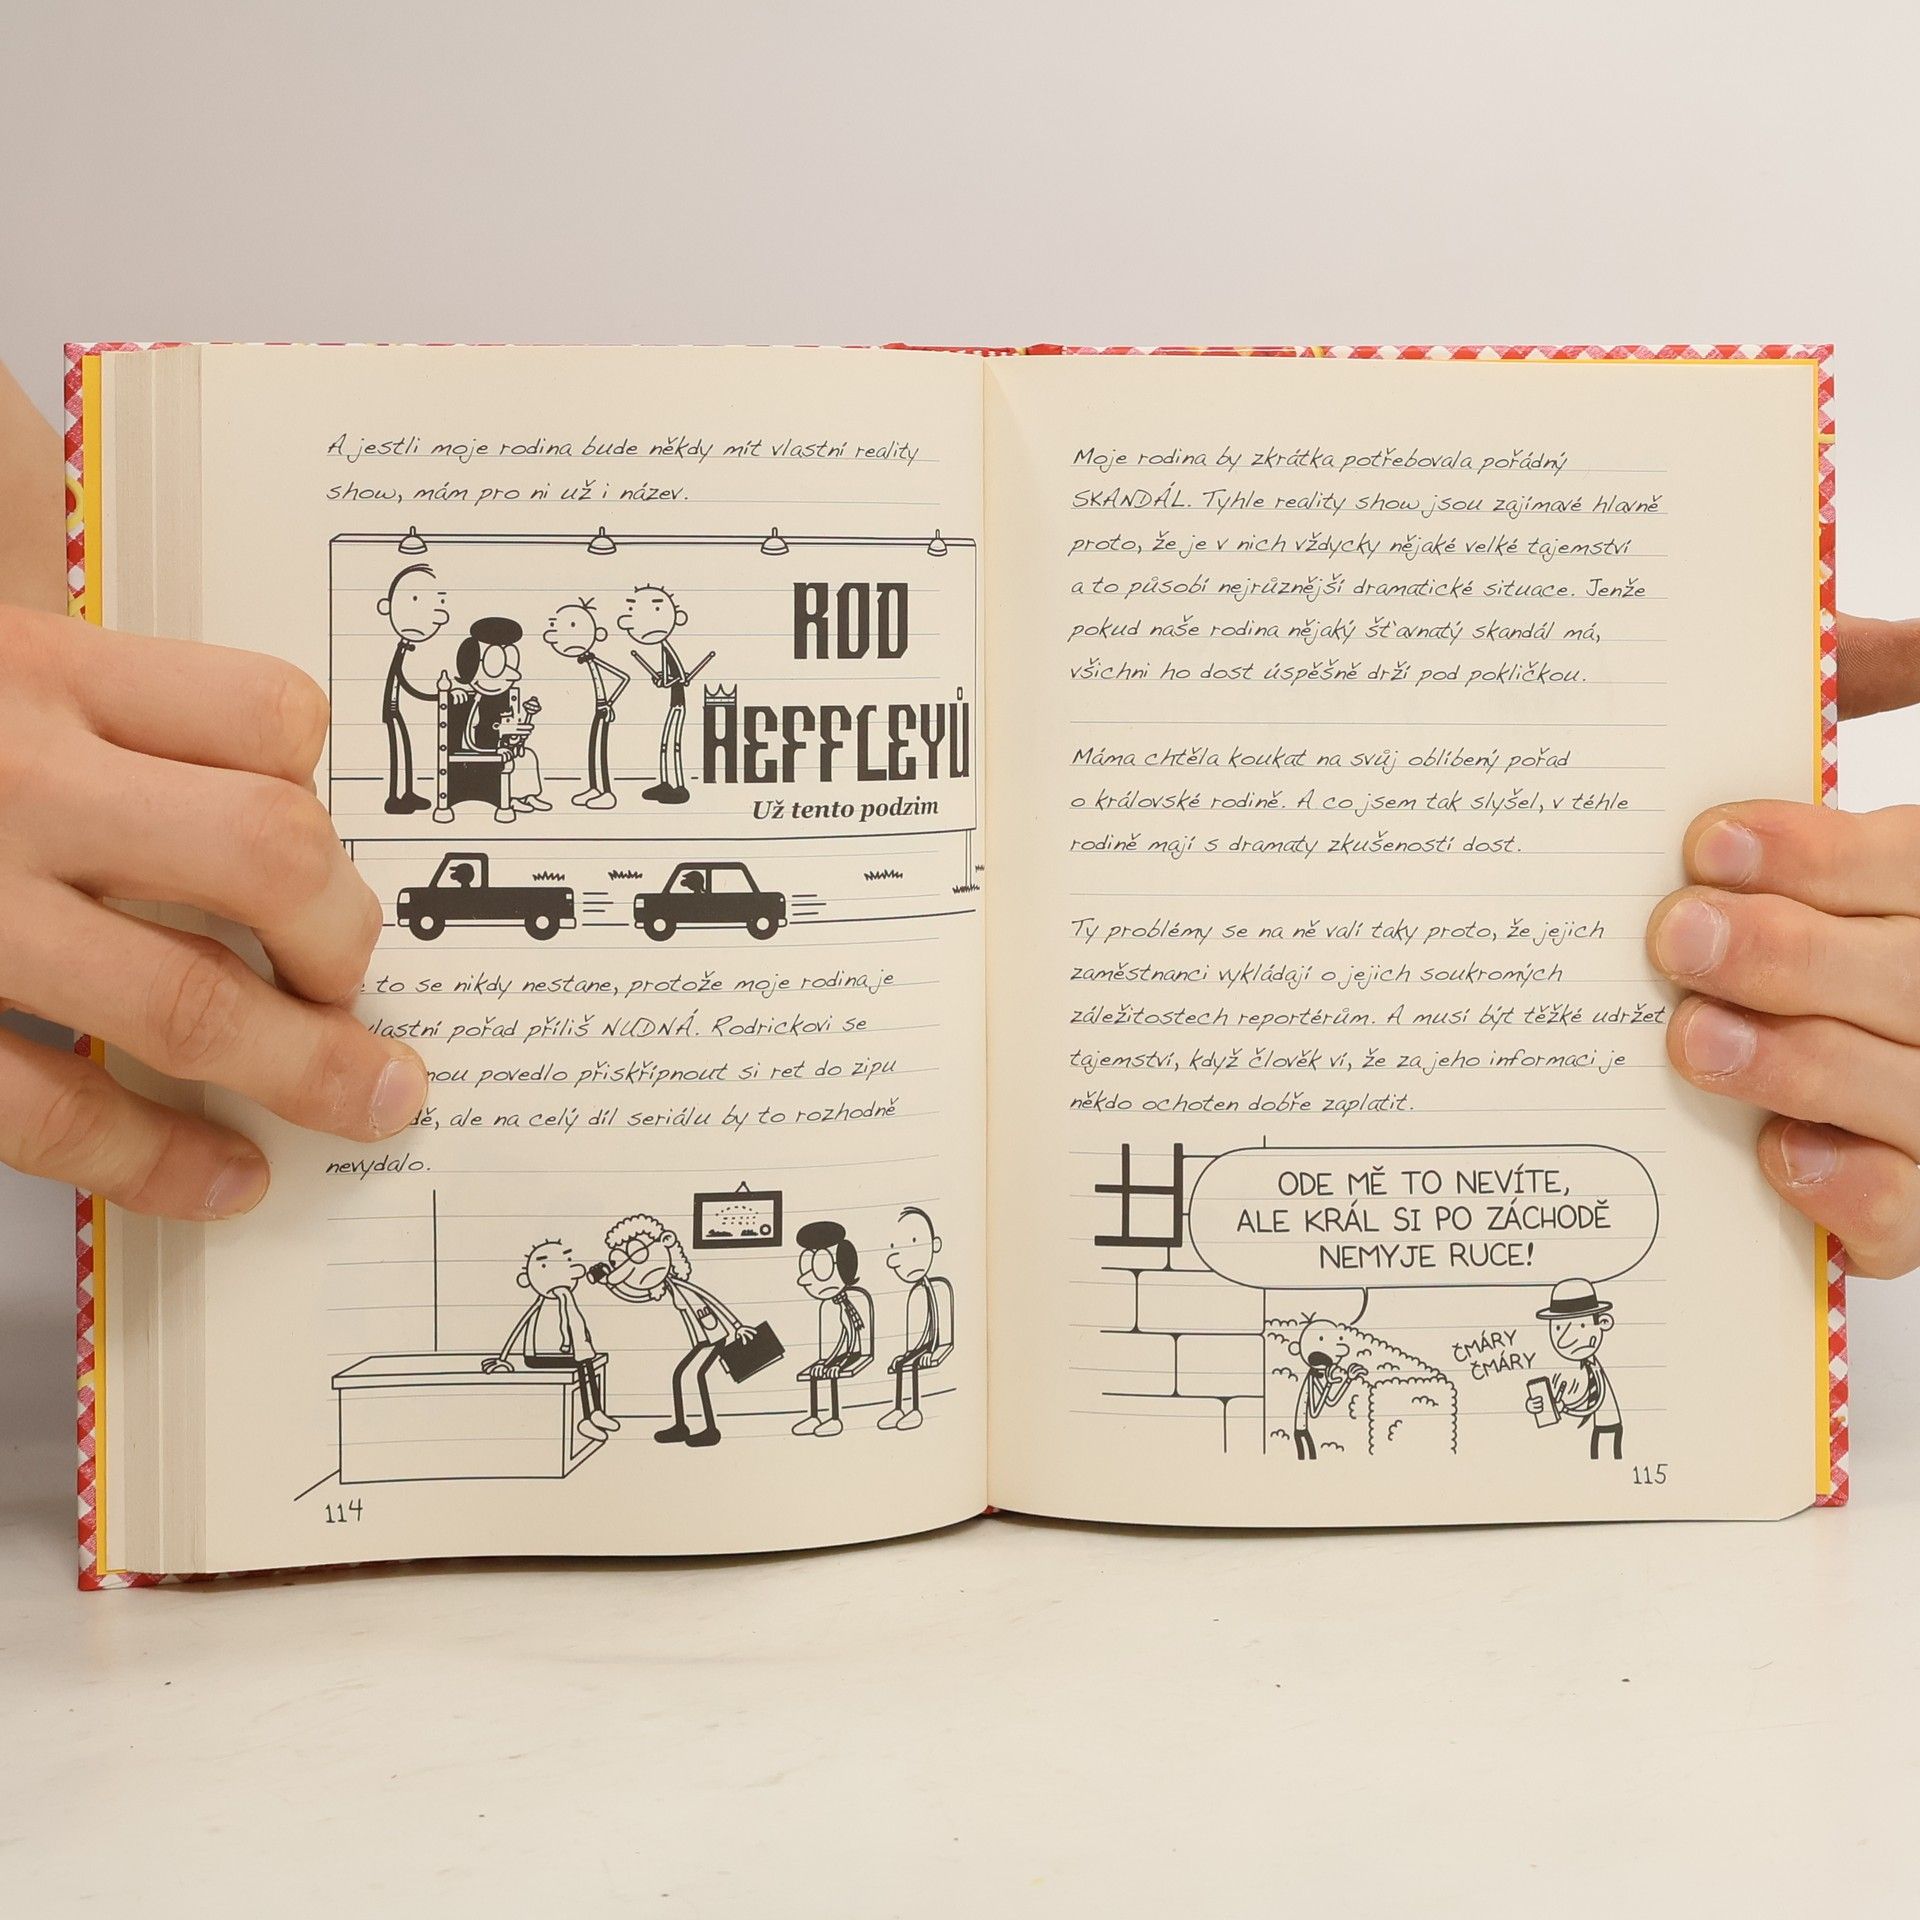 A jestli moje rodina bude někdy mít vlastní reality
show, mám pro ni už i název.
ROD
HEFFLEYŮ
Už tento podzim
to se nikdy nestane, protože moje rodina je
vlastní pořad příliš NUDNÁ. Rodrickovi se
povedlo přiskřípnout si ret do zipu
ale na celý díl seriálu by to rozhodně
nevydalo.
114
Moje rodina by zkrátka potřebovala pořádný
SKANDÁL. Tyhle reality show jsou zajímavé hlavně
proto, že je v nich vždycky nějaké velké tajemství
a to působí nejrůznější dramatické situace. Jenže
pokud naše rodina nějaký šťavnatý skandál má,
všichni ho dost úspěšně drží pod pokličkou.
Máma chtěla koukat na svůj oblíbený pořad
o královské rodině. A co jsem tak slyšel, v téhle
rodině mají s dramaty zkušeností dost.
Ty problémy se na ně valí taky proto, že jejich
zaměstnanci vykládají o jejich soukromých
záležitostech reportérům. A musí být těžké udržet
tajemství, když člověk ví, že za jeho informaci je
někdo ochoten dobře zaplatit.
ODE MĚ TO NEVÍTE,
ALE KRÁL SI PO ZÁCHODĚ
NEMYJE RUCE!
ČMÁRY
ČMÁRY
115